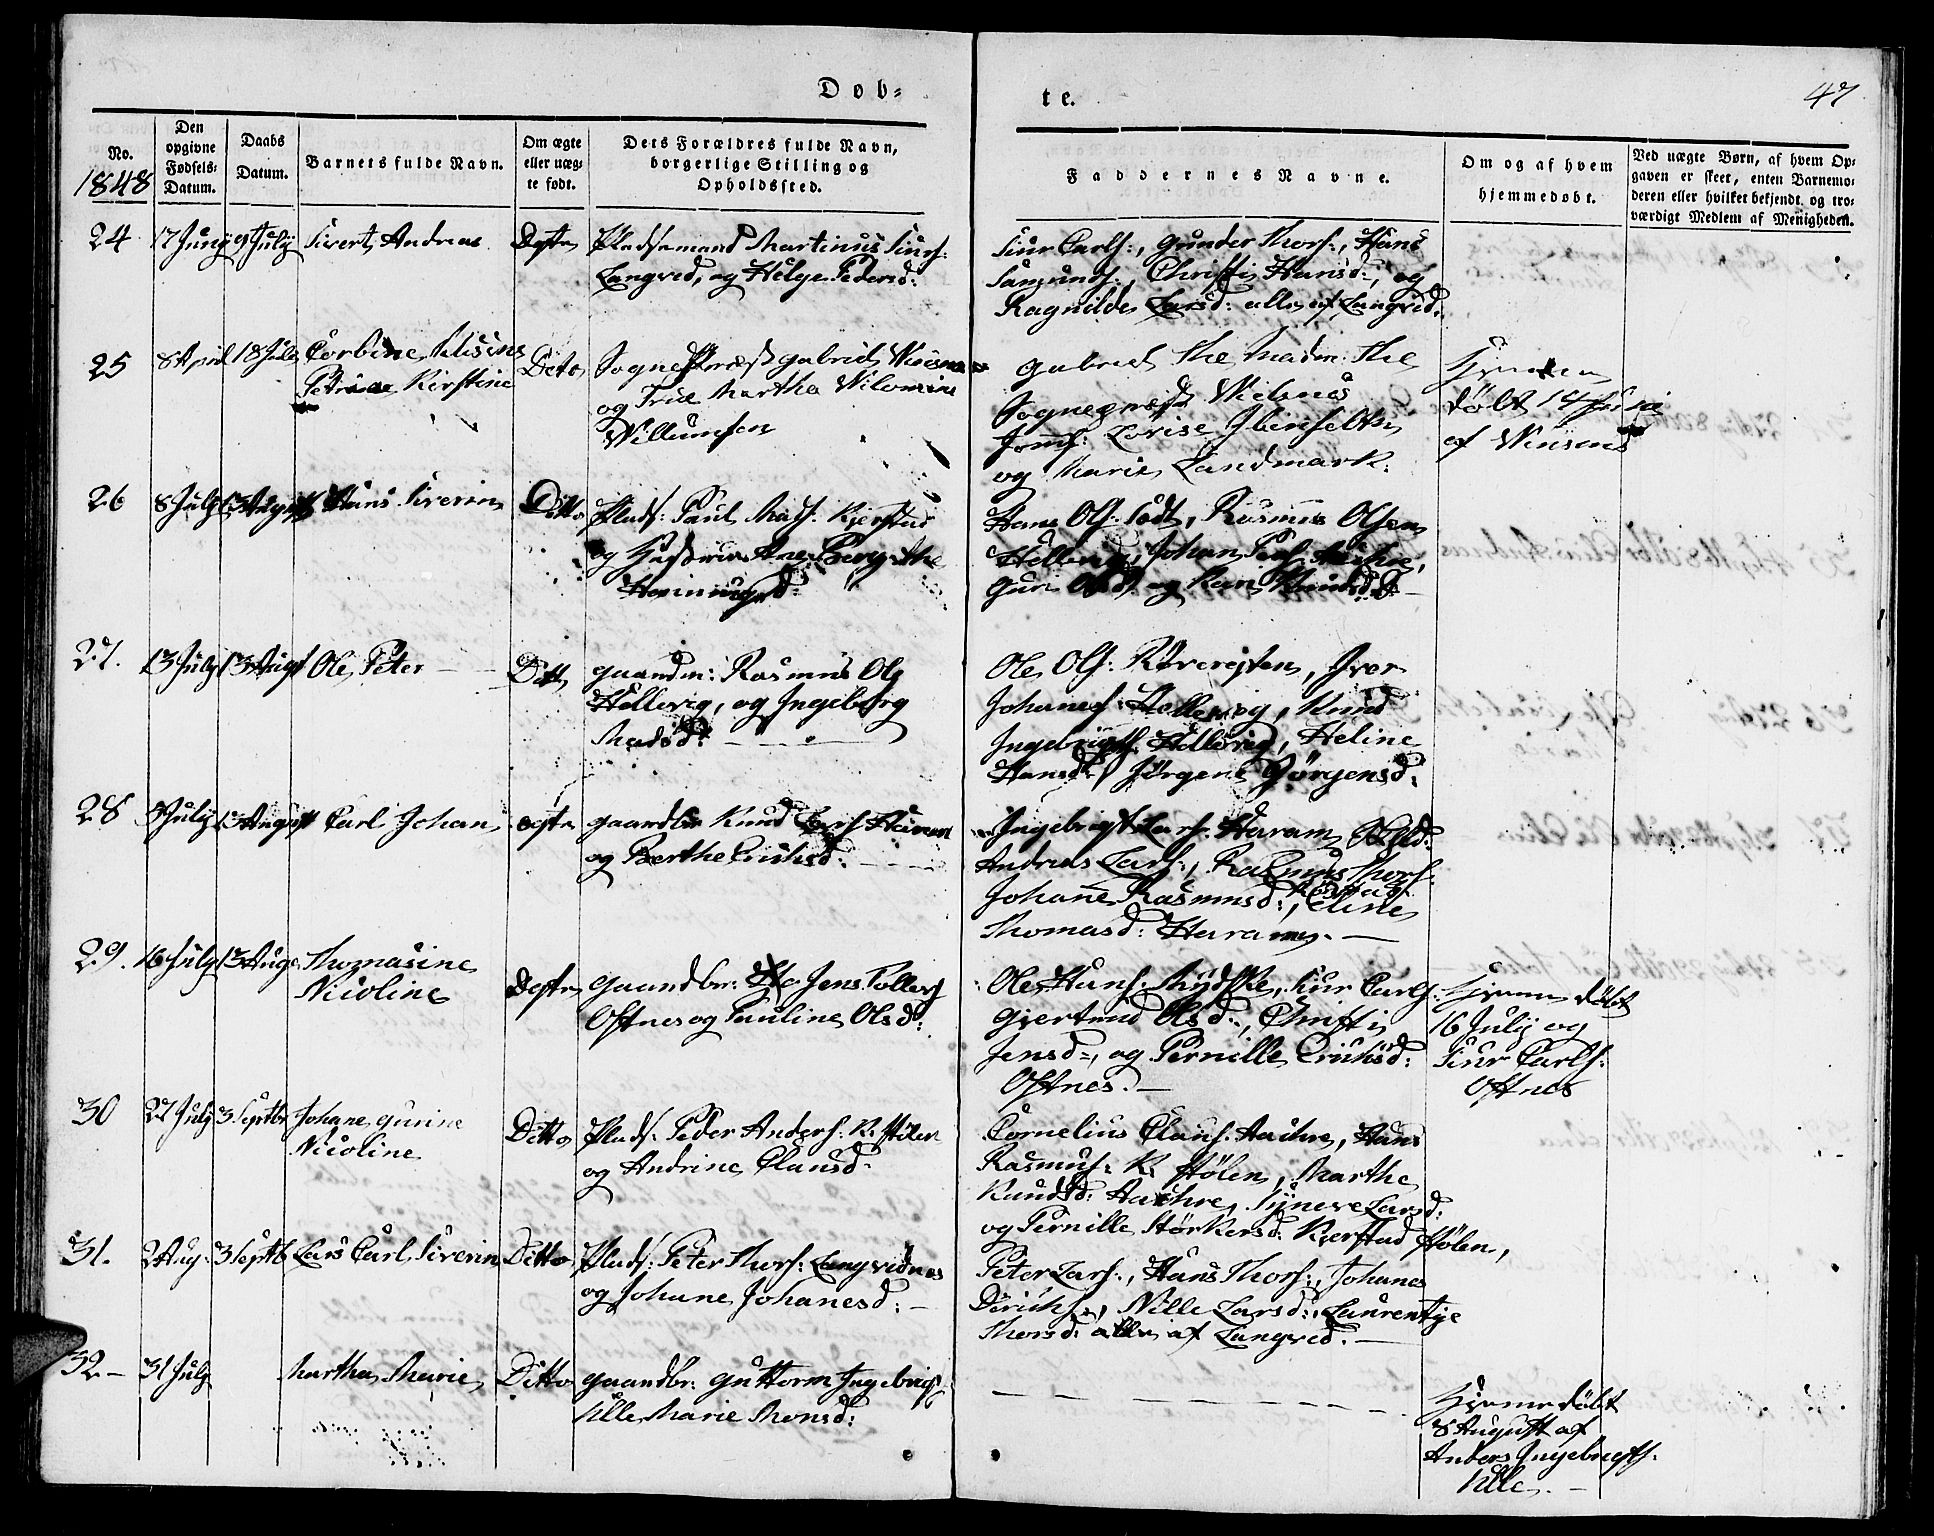 Døb=
te.
47
No.
1848
Den opgivne Fødsels= Datum.
Daabs Datum.
Barnets fulde Navn.
Om ægte eller uæg= te født.
Dets Forældres fulde Navn, borgerlige Stilling og Opholdssted.
Faddernes Navne.
Om og af hvem hjemmedøbt.
Ved uægte Børn, af hvem Op= gaven er skeet, enten Barnemo= deren eller hvilket bekjendt og tro= værdigt Medlem af Menigheden.
24 17 Juny 9 July Sivert Andreas Ægte Pladsemand Martinus Siurs:
Langved, og Helge Pedersd:
Siur Carls:, Gunder Thors:, Hans
Christi Hansd:, og
Ragnilde Larsd: alle af Langved.
25 8 April 18 July
Petrine Kirstine
Dito
Sognepræst Gabriel
og Frue Martha
Willumsen
Gabriel The Madm: The
Sognepræst
Jomf: Lovise
og Marie Landmark.
døbt 14 Juni
af
26 8 July 13 August Hans Siverin
Ditto
Plads: Paul Mads: Kjerstad
og Hustrue Ane Berg
Hans Ols: Rasmus Olsen
Hellevig, Johan Peds: Aachre,
Guri Olsd: og Karn Knudsd:
27. 13 July 13 Augst Ole Peter
Ditto
Gaardm: Rasmus Ols
Hellevig, og Ingeborg
Madsd:
Ole Ols: Iver
Johanes: Hellevig, Knud
Ingebrigts: Hellevig, Heline
Hansd: Jørgene Jørgensd:
28 July 13 August Carl Johan Ægte
Gaardbr: Knud Lars: Haram
og Berthe Erichsd:
Ingebrigt Lars: Haram,
Andreas Lars:, Rasmus Thors:
Johane Rasmusd:, Eline
Thomasd: Haram.
29. 16 July 13 Aug: Thomasine
Nicoline
Ægte
Gaardbr: Jens
Ostnes og Pauline Olsd:
Ole Hans: Siur Carls:
Giertrud Olsd:, Christi
Jensd:, og Pernille Erichsd:
Ostnes.
Hjemme døbt
16 July og
Siur Carls:
Ostnes
30 27 July 3 Septbr Johane Gurine
Nicoline
Ditto
Plads: Peder Anders: K: Stølen
og Andrine Clausd:
Cornelius Claus: Aachre, Hans
Rasmus: K: Stølen, Marthe
Knudsd: Aachre, Syneve Larsd:
og Pernille Størkersd: Kjerstad Stølen,
31. 2 Aug: 3 Septb Lars Carl Siverin Ditto
Plads: Peter Thors: Langvednes
og Johane Johanesd:
Peter Lars:, Hans Thors:, Johanes
Nille Larsd:, Laurentze
Thorsd: alle af Langved.
32 31 July
Martha Marie Ditto
Gaardbr: Guttorm Ingebrigts:
Ulle Marie Monsd:
Hjemmedøbt
8 August af
Anders Ingebrigts:
Ulle.